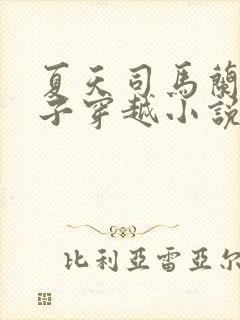 夏天司馬蘭
子穿越小說
比利亞雷亞尔